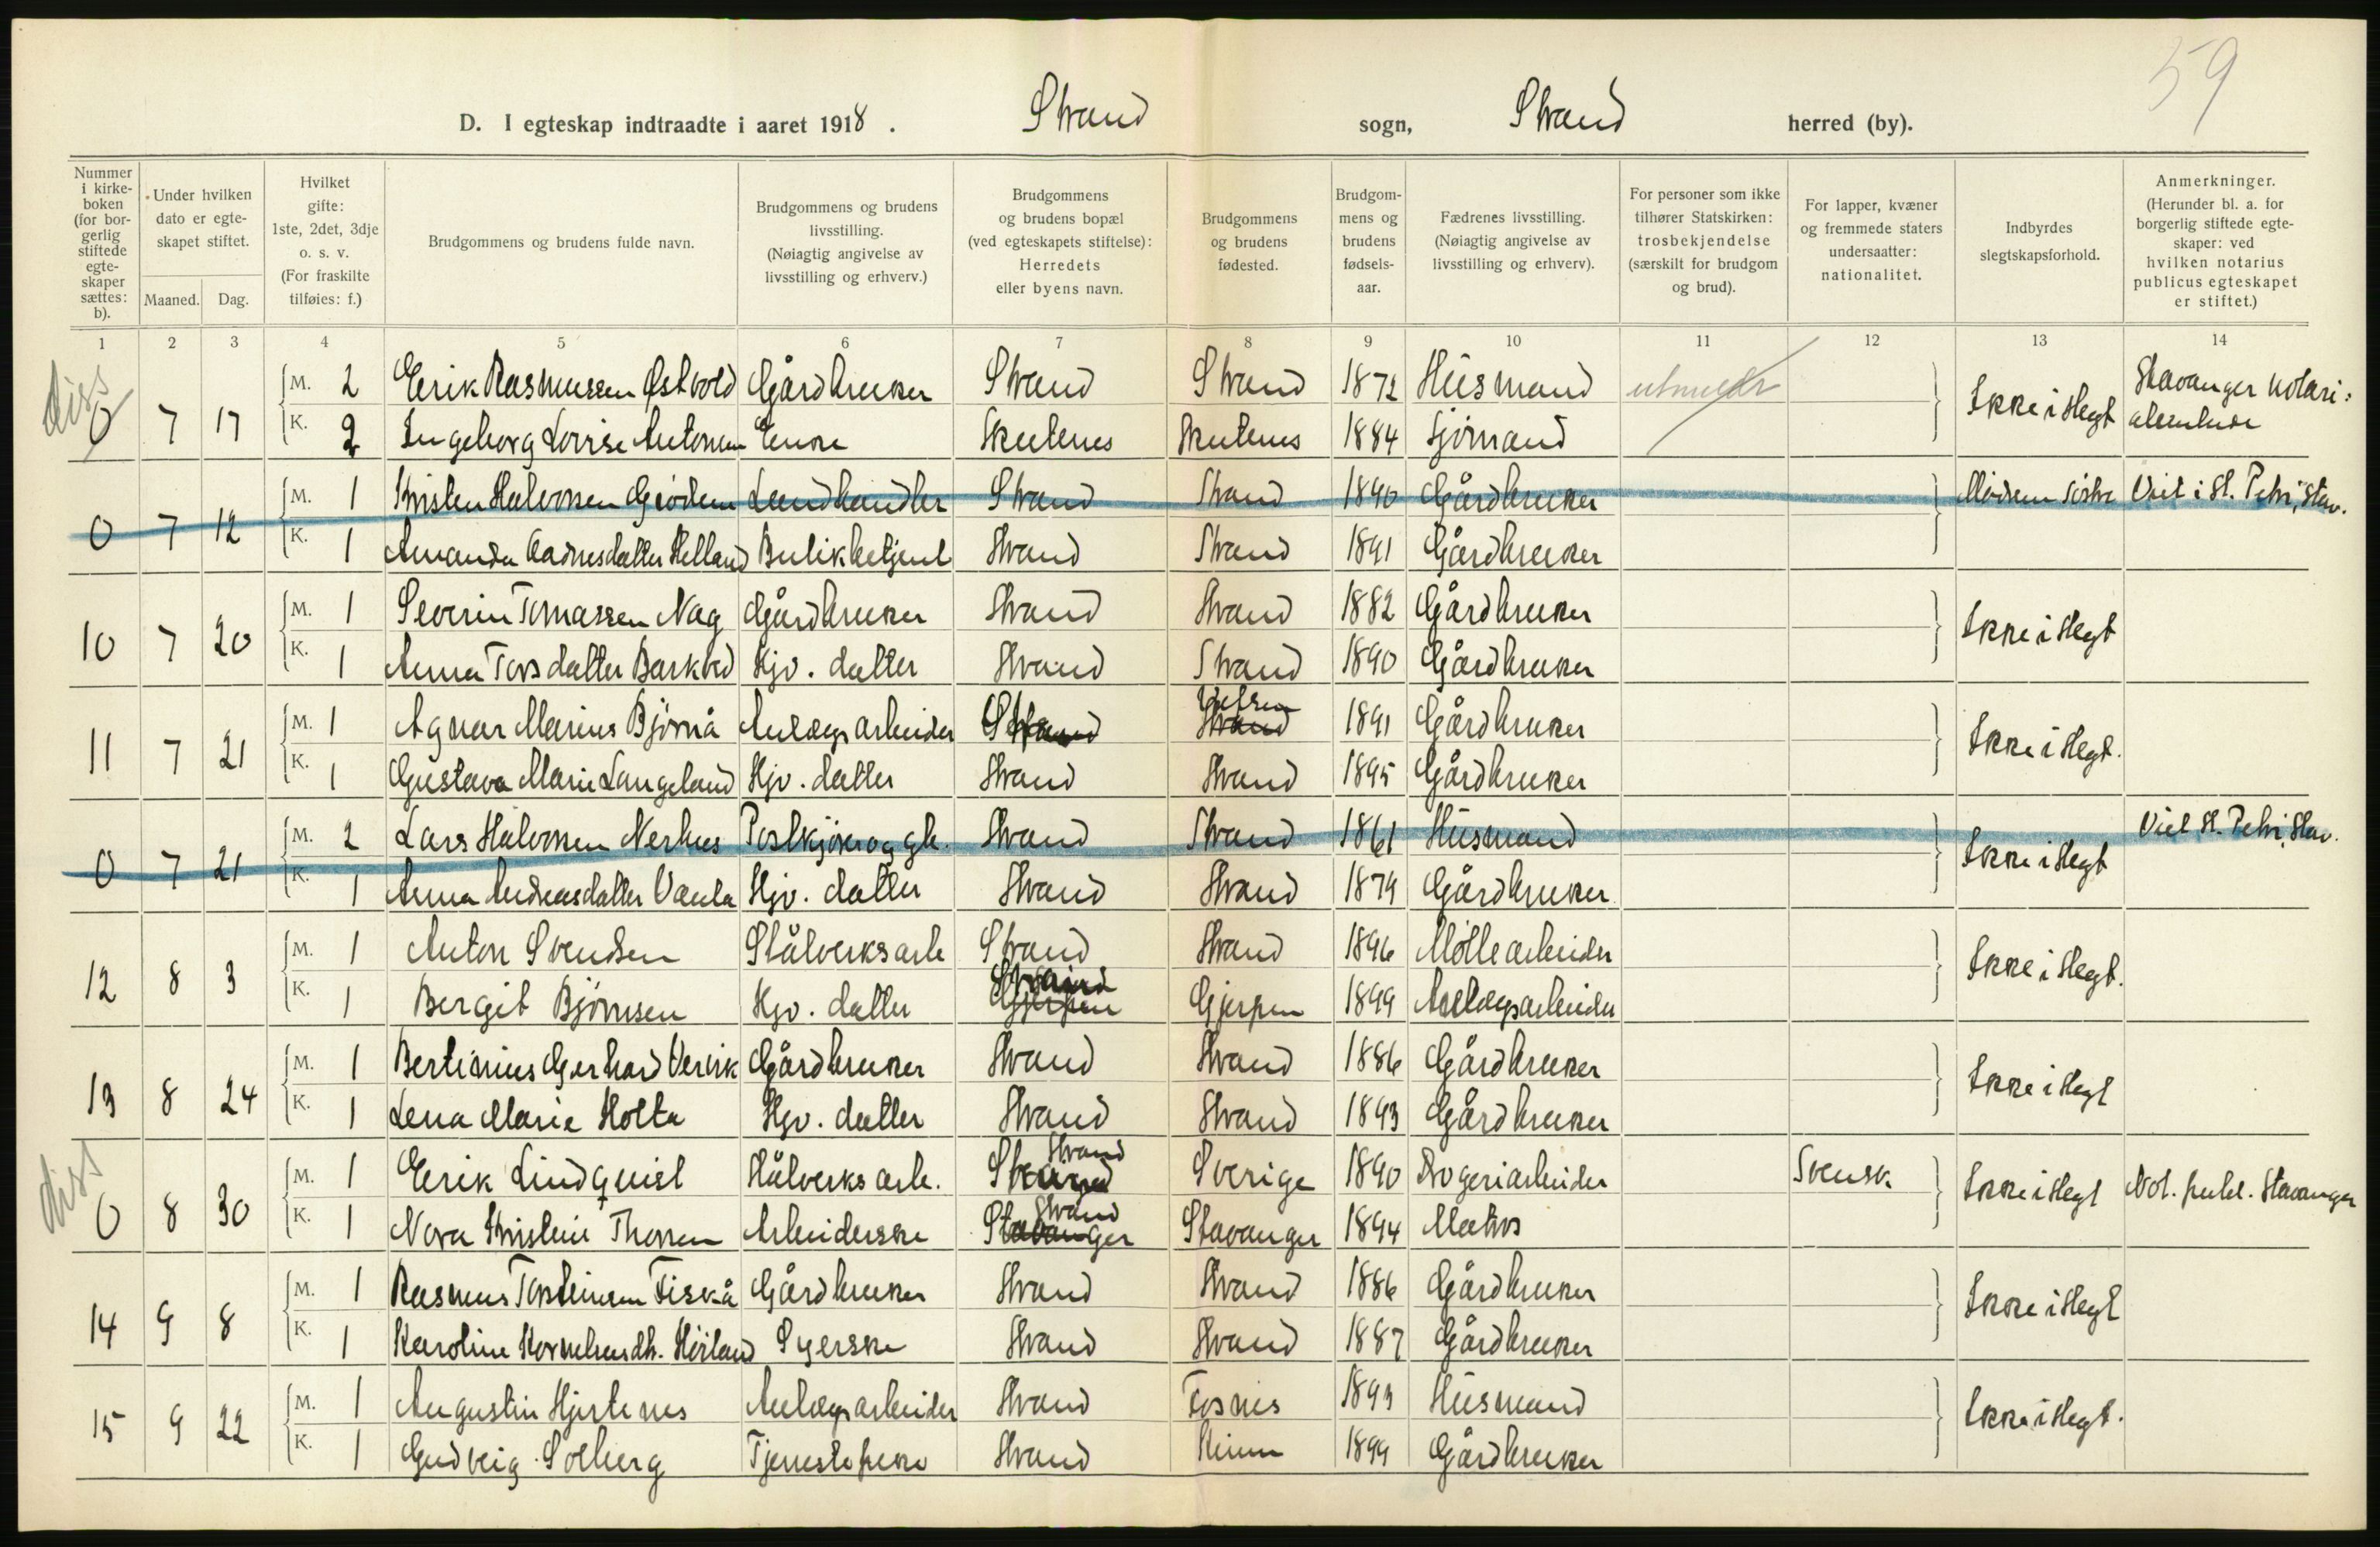 59
D. I egteskap indtraadte i aaret 1918. Strand sogn, Strand herred (by).
Nummer i kirkeboken (for borgerlig stiftede egteskaper sættes: b).
Under hvilken dato er egteskapet stiftet.
Maaned. Dag.
Hvilket gifte: 1ste, 2det, 3dje o. s. v. (For fraskilte tilføies: f.)
Brudgommens og brudens fulde navn.
Brudgommens og brudens livsstilling. (Nøiagtig angivelse av livsstilling og erhverv.)
Brudgommens og brudens bopæl (ved egteskapets stiftelse): Herredets eller byens navn.
Brudgommens og brudens fødested.
Brudgommens og brudens fødselsaar.
Fædrenes livsstilling. (Nøiagtig angivelse av livsstilling og erhverv).
For personer som ikke tilhører Statskirken: trosbekjendelse (særskilt for brudgom og brud).
For lapper, kvæner og fremmede staters undersaatter: nationalitet.
Indbyrdes slegtskapsforhold.
Anmerkninger. (Herunder bl. a. for borgerlig stiftede egteskaper: ved hvilken notarius publicus egteskapet er stiftet.)
1 2 3 4 5 6 7 8 9 10 11 12 13 14
diss
0 7 17 M. 2 Erik Rasmussen Østvold Gårdbruker Strand Strand 1872 Husmand utmeldt Ikke i slegt Stavanger notari-
K. 2 Ingeborg Lovise Antonsen Enke Skutenes Skutenes 1884 Sjömand
0 7 12 M. 1 Kristen Halvorsen Grödem Landhandler Strand Strand 1890 Gårdbruker Mödren söstre Viet i St. Petri, Stav.
K. 1 Amanda Aadnesdatter Helland Butikbetjent Strand Strand 1891 Gårdbruker
10 7 20 M. 1 Severin Tomassen Nag Gårdbruker Strand Strand 1882 Gårdbruker Ikke i slegt
K. 1 Anna Torsdatter Barkved Hjv. datter Strand Strand 1890 Gårdbruker
11 7 21 M. 1 Agnar Marius Björnå Anlægsarbeider Strand Vefsen Strand 1891 Gårdbruker Ikke i slegt.
K. 1 Gustava Marie Langeland Hjv. datter Strand Strand 1895 Gårdbruker
0 7 21 M. 2 Lars Halvorsen Nerhus Postkjörer og gb. Strand Strand 1861 Husmand Ikke i slegt Viet St. Petri, Stav.
K. 1 Anna Andreasdatter Vaula Hjv. datter Strand Strand 1879 Gårdbruker
12 8 3 M. 1 Anton Svendsen Stålverksarb Strand Strand 1896 Möllearbeider Ikke i slegt.
K. 1 Bergit Björnsen Hjv. datter Strand Gjerpen Gjerpen 1899 Anlægsarbeider
13 8 24 M. 1 Bertinius Gerhard Vervik Gårdbruker Strand Strand 1886 Gårdbruker Ikke i slegt
K. 1 Lena Marie Holta Hjv. datter Strand Strand 1893 Gårdbruker
diss
0 8 30 M. 1 Erik Lindquist Stålverksarb. Strand Sverige 1890 Svensk Ikke i slegt Not. publ. Stavanger
K. 1 Nora Kristine Thorsen Arbeiderske Strand Stavanger Stavanger 1894 Matros
14 9 8 M. 1 Rasmus Torsteinsen Fiskå Gårdbruker Strand Strand 1886 Gårdbruker Ikke i slegt
K. 1 Karoline Korneliusdtr. Höiland Syerske Strand Strand 1887 Gårdbruker
15 9 22 M. 1 Augustin Hjertenes Anlægsarbeider Strand Fosnes 1893 Husmand Ikke i slegt.
K. 1 Gudveig Solberg Tjenestepike Strand Kinn 1899 Gårdbruker